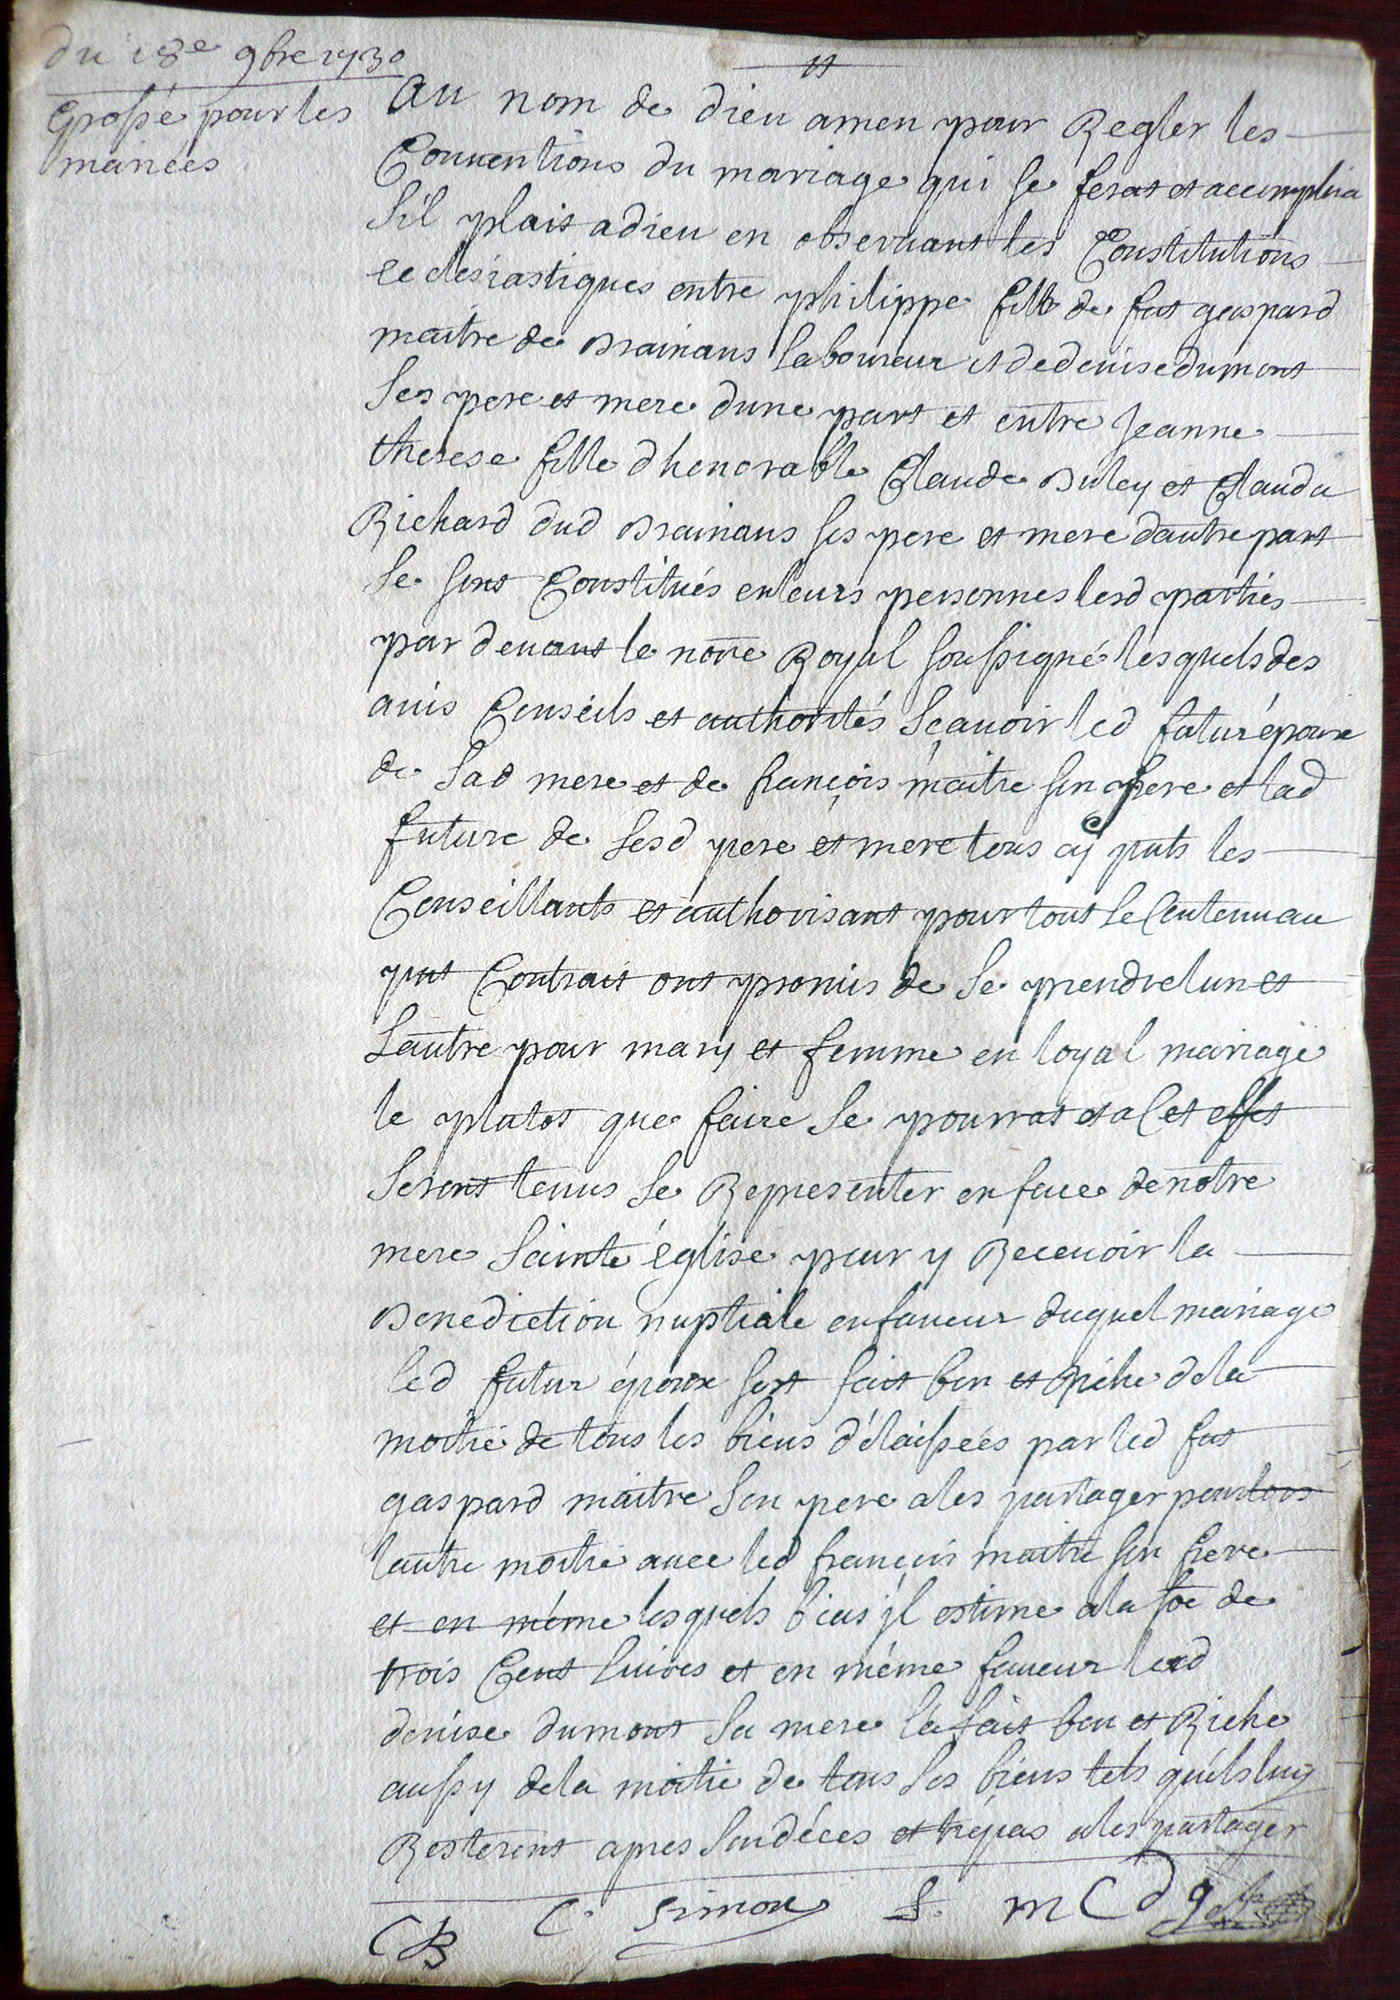 du 18e 9bre 1730
Grossé pour les
mariées
Au nom de dieu amen pour Regler les
Conventions du mariage qui se ferat et accomplira
sil plait a dieu en observant les Constitutions
ecclesiastiques entre philippe fille de fut gaspard
maitre de Brainans laboureur et de denise dumont
ses pere et mere dune part et entre Jeanne
therese fille dhonorable Claude Buley et Clauda
Richard dud Brainans ses pere et mere dautre part
se sont Constitués en leurs personnes lesd parties
par devant le nore Royal soussigné lesquels des
avis Conseils et authorités sçavoir led futur époux
de sad mere et de françois maitre son frere et lad
future de sesd pere et mere tous cy pnts les
Conseillants et authorisant pour tout le Contenu au
pnt Contrait ont promis de se prendre lun et
lautre pour mary et femme en loyal mariage
le plutos que faire se pourrat et a Cet effet
seront tenus se Representer en face de notre
mere sainte église pour y Recevoir la
Benediction nuptiale en faveur duquel mariage
led futur époux sest fait bon et Riche de la
moitié de tous les biens délaissées par led fut
gaspard maitre son pere a les partager pour lors
lautre moitié avec led françois maitre son frere
et en méme lesquels bien jl estime a la soe de
trois Cent livres et en méme faveur lad
denise dumont sa mere la fait bon et Riche
aussy de la moitié de tous ses biens tels quéls luy
Resteront apres son déces et trépas a les partager
CB C. simon f. m C d g